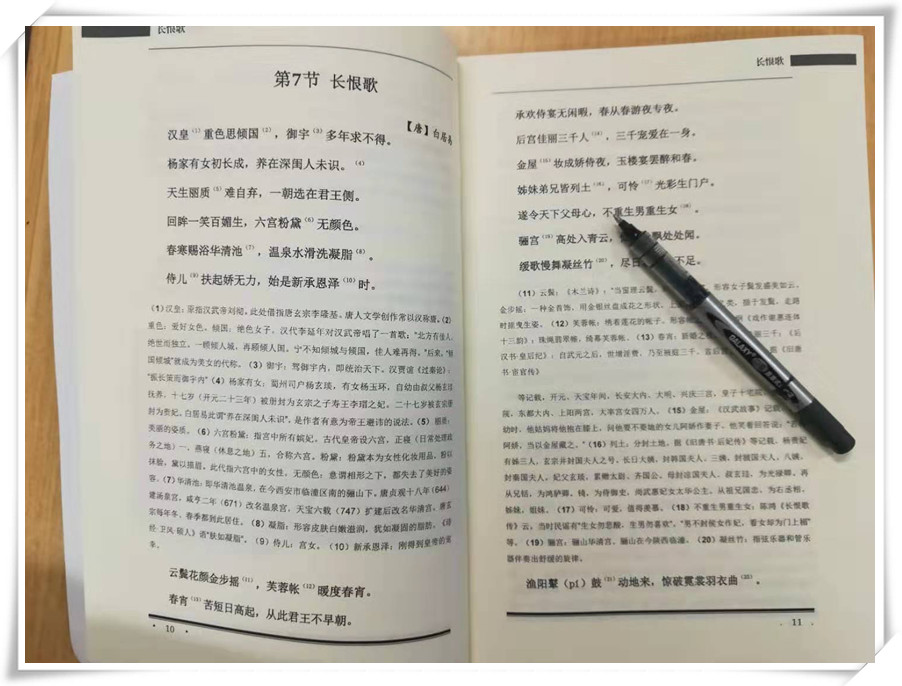 长恨歌
第7节 长恨歌
【唐】白居易
汉皇(1)重色思倾国(2)，御宇(3)多年求不得。
杨家有女初长成，养在深闺人未识。(4)
天生丽质(5)难自弃，一朝选在君王侧。
回眸一笑百媚生，六宫粉黛(6)无颜色。
春寒赐浴华清池(7)，温泉水滑洗凝脂(8)。
侍儿(9)扶起娇无力，始是新承恩泽(10)时。
(1)汉皇：原指汉武帝刘彻。此处借指唐玄宗李隆基。唐人文学创作常以汉称唐。(2)
重色：爱好女色。倾国：绝色女子。汉代李延年对汉武帝唱了一首歌："北方有佳人，
绝世而独立。一顾倾人城，再顾倾人国。宁不知倾城与倾国，佳人难再得。"后来，"倾
国倾城"就成为美女的代称。(3)御宇：驾御宇内，即统治天下。汉贾谊《过秦论》：
"振长策而御宇内"(4)杨家有女：蜀州司户杨玄琰，有女杨玉环，自幼由叔父杨玄珪
抚养，十七岁（开元二十三年）被册封为玄宗之子寿王李瑁之妃。二十七岁被玄宗册
封为贵妃，白居易此谓"养在深闺人未识"，是作者有意为帝王避讳的说法。(5)丽质：
美丽的姿质。(6)六宫粉黛：指宫中所有嫔妃。古代皇帝设六宫，正寝（日常处理政
务之地）一，燕寝（休息之地）五，合称六宫。粉黛：粉黛本为女性化妆用品，粉以
抹脸，黛以描眉。此代指六宫中的女性。无颜色：意谓相形之下，都失去了美好的姿
容。(7)华清池：即华清池温泉，在今西安市临潼区南的骊山下。唐贞观十八年(644)
建汤泉宫，咸亨二年(671)改名温泉宫，天宝六载(747)扩建后改名华清宫。唐玄
宗每年冬、春季都到此居住。(8)凝脂：形容皮肤白嫩滋润，犹如凝固的脂肪。《诗
经·卫风·硕人》语"肤如凝脂"。(9)侍儿：宫女。(10)新承恩泽：刚得到皇帝的宠
幸。
云鬓花颜金步摇(11)，芙蓉帐(12)暖度春宵。
春宵(13)苦短日高起，从此君王不早朝。
· 10 ·
长恨歌
承欢侍宴无闲暇，春从春游夜专夜。
后宫佳丽三千人(14)，三千宠爱在一身。
金屋(15)妆成娇侍夜，玉楼宴罢醉和春。
姊妹弟兄皆列土(16)，可怜(17)光彩生门户。
遂令天下父母心，不重生男重生女(18)。
骊宫(19)高处入青云，飘处处闻。
缓歌慢舞凝丝竹(20)，尽日不足。
(11)云鬓：《木兰诗》："当窗理云鬓，形容女子鬓发盛美如云。
金步摇：一种金首饰，用金银丝盘成花之形状，上类，插于发鬓，走路
时摇曳生姿。(12)芙蓉帐：绣着莲花的帐子。形容《戏作谢惠连体
十三韵》：珠绳翡翠帷，绮幕芙蓉帐。(13)春宵：新婚之三千：《后
汉书·皇后纪》：自武元之后，世增淫费，乃至掖庭三千。言后《旧唐
书·宦官传》
等记载，开元、天宝年间，长安大内、大明、兴庆三宫，皇子十宅
院，东都大内、上阳两宫，大率宫女四万人。(15)金屋：《汉武故事》记载
幼时，他姑妈将他抱在膝上，问他要不要她的女儿阿娇作妻子。他笑着回答说："若
阿娇，当以金屋藏之。"(16)列土：分封土地。据《旧唐书·后妃传》等记载，杨贵妃
有姊三人，玄宗并封国夫人之号。长曰大姨，封韩国夫人。三姨，封虢国夫人。八姨，
封秦国夫人。妃父玄琰，累赠太尉、齐国公。母封凉国夫人。叔玄珪，为光禄卿。再
从兄铦，为鸿胪卿。锜，为侍御史，尚武惠妃女太华公主。从祖兄国忠，为右丞相。
姊妹，姐妹。(17)可怜：可爱，值得羡慕。(18)不重生男重生女：陈鸿《长恨歌
传》云，当时民谣有"生女勿悲酸，生男勿喜欢"，"男不封侯女作妃，看女却为门上楣"
等。(19)骊宫：骊山华清宫。骊山在今陕西临潼。(20)凝丝竹：指弦乐器和管乐
器伴奏出舒缓的旋律。
渔阳鼙（pí）鼓(21)动地来，惊破霓裳羽衣曲(22)。
· 11 ·